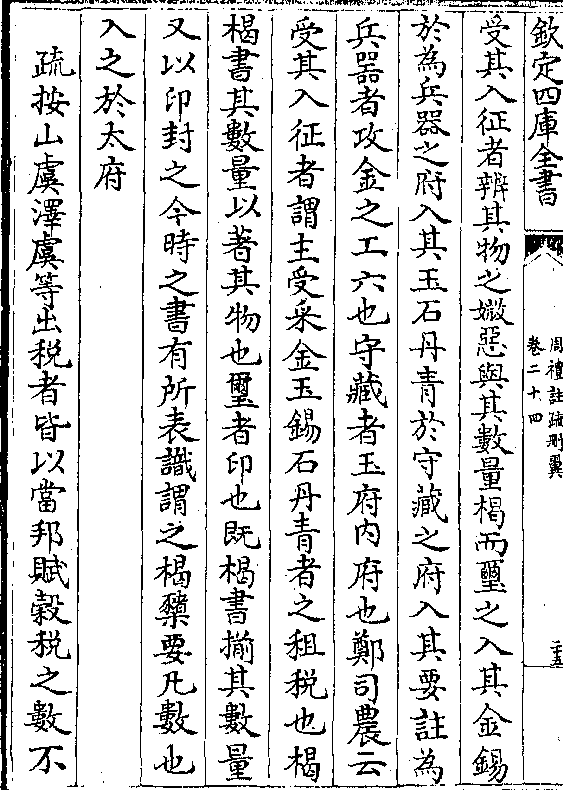 欽定四庫全書
周禮註疏刪翼
卷二十四
二十五
受其入征者辨其物之媺惡與其數量楬而璽之入其金錫
於為兵器之府入其玉石丹青於守藏之府入其要註為
兵器者攻金之工六也守藏者玉府内府也鄭司農云
受其入征者謂主受采金玉錫石丹青者之租税也楬
楬書其數量以著其物也璽者印也既楬書揃其數量
又以印封之今時之書有所表識謂之楬櫫要凡數也
入之於太府
疏按山虞澤虞等出税者皆以當邦賦穀税之數不